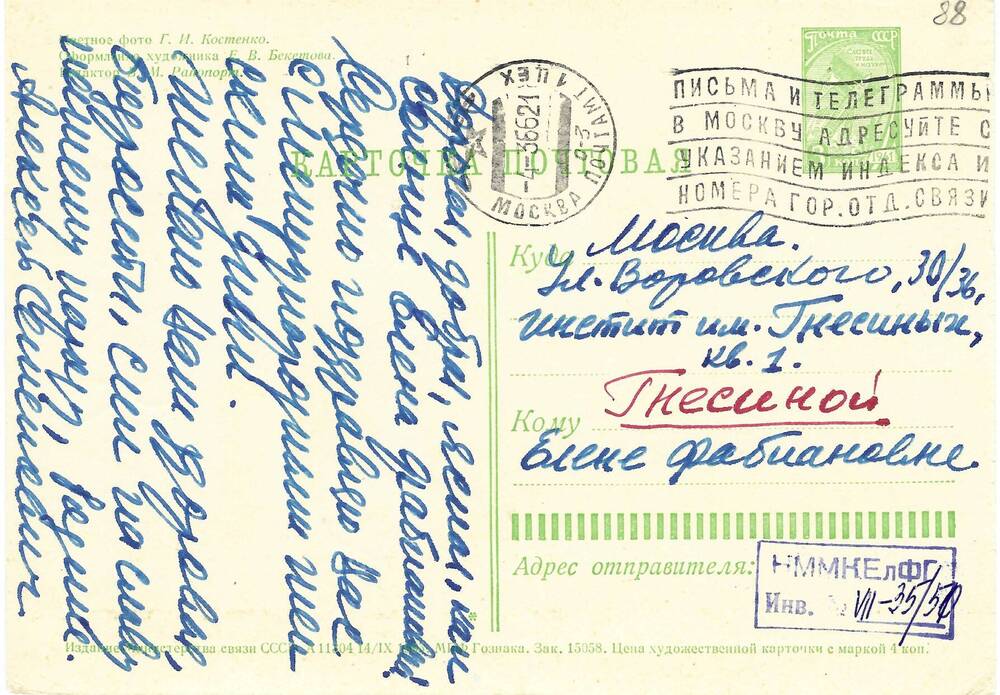 88
Цветное фото Г. И. Костенко.
Оформление художника Е. В. Бекетова.
Редактор И. Рапопорт.
Почта СССР
КАРТОЧКА ПОЧТОВАЯ
МОСКВА
ПОЧТАМТ 1 ЦЕХ
ПИСЬМА И ТЕЛЕГРАММЫ
В МОСКВУ АДРЕСУЙТЕ С
УКАЗАНИЕМ ИНДЕКСА И
НОМЕРА ГОР. ОТД. СВЯЗИ
Дорогая, добрая, ясная, как
солнце Елена Фабиановна!
Сердечно поздравляю Вас
с Международным жен
ским днем.
Желаю Вам здоровья,
бодрости, сил на славу
нашему народу, Родине.
Алексей
Куда Москва.
Ул. Воровского, 30/36,
институт им. Гнесиных,
кв. 1.
Кому Гнесиной
Елене Фабиановне.
Адрес отправителя:
НММКЕлФГ
Инв. № VII-35/50
Издание Министерства связи СССР. А 11304 14/IX МПФ Гознака. Зак. 15058. Цена художественной карточки с маркой 4 коп.